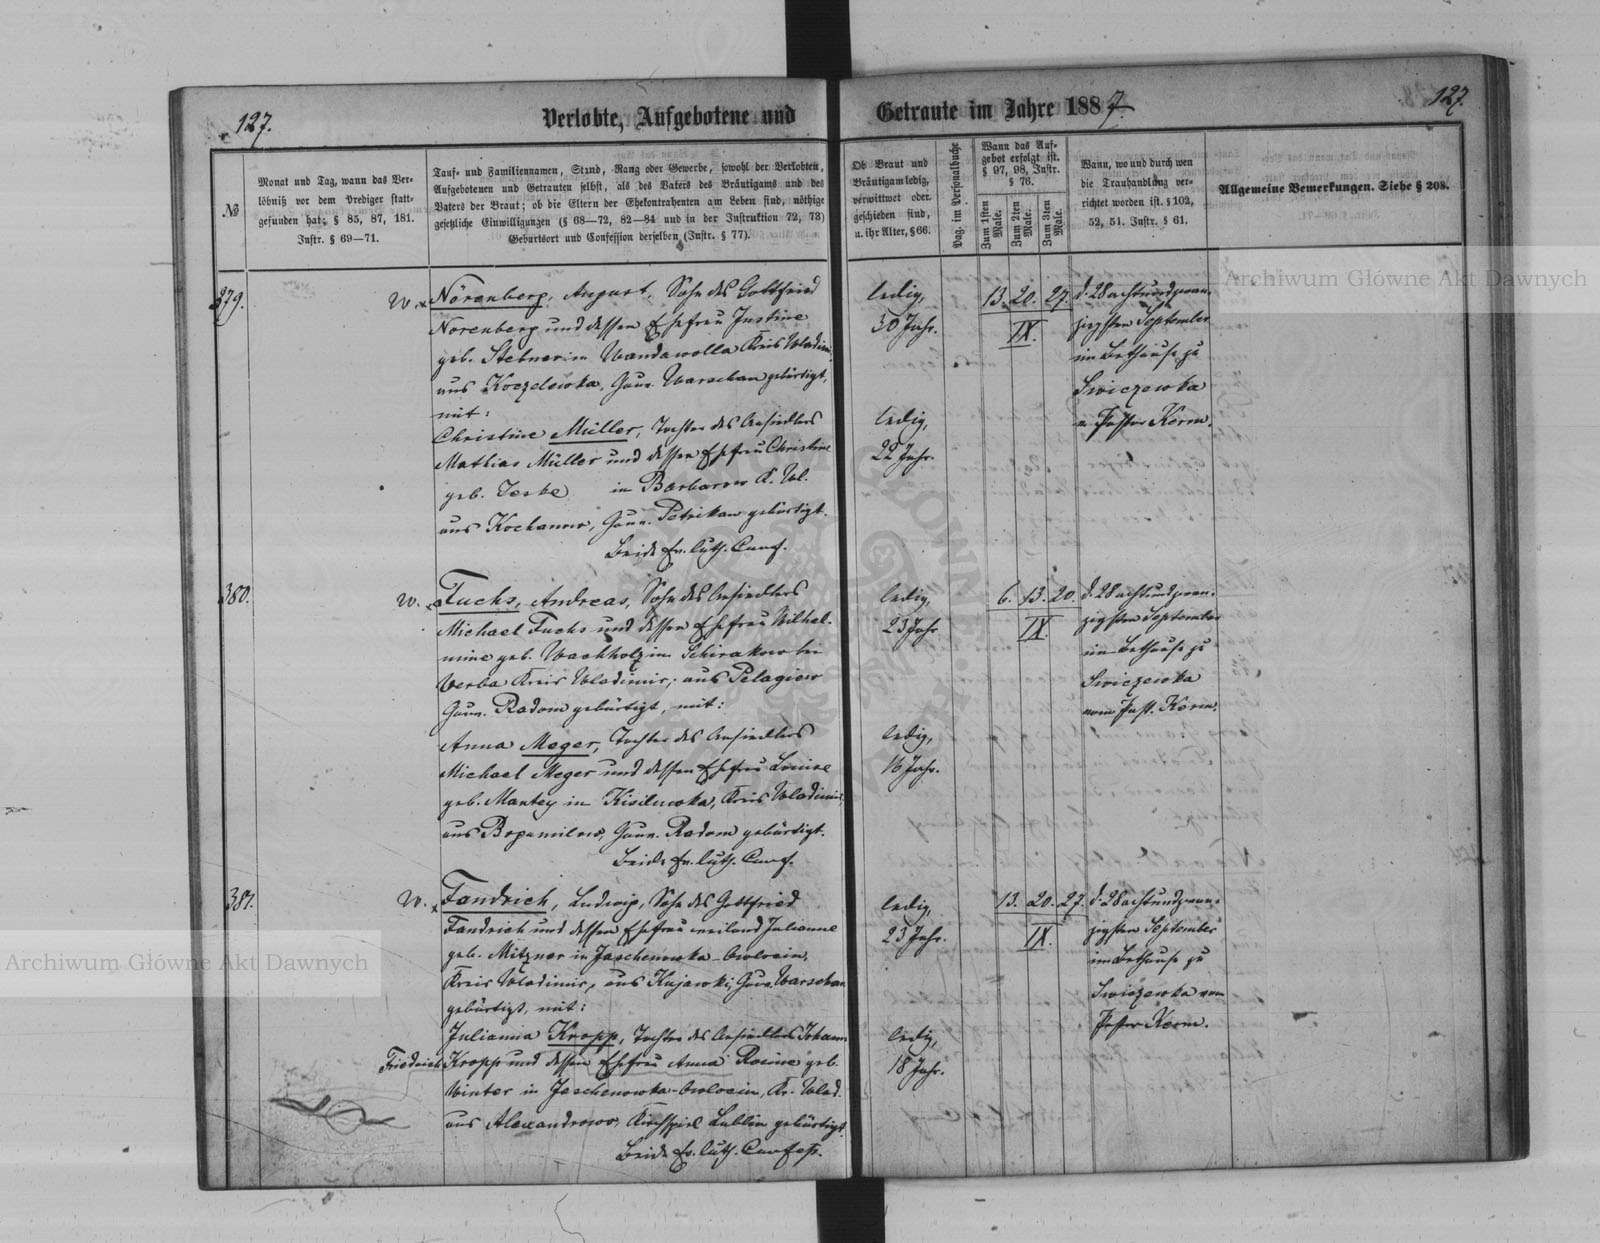 127.
Verlobte, Aufgebotene und
Getraute im Jahre 1887.
127.
№
Monat und Tag, wann das Ver-
löbniß vor dem Prediger statt-
gefunden hat; § 85, 87, 181.
Instr. § 69—71.
Tauf- und Familiennamen, Stand, Rang oder Gewerbe, sowohl der Verlobten,
Aufgebotenen und Getrauten selbst, als des Vaters des Bräutigams und des
Vaters der Braut; ob die Eltern der Ehekontrahenten am Leben sind, nöthige
gesetzliche Einwilligungen (§ 68—72, 82—84 und in der Instruktion 72, 73)
Geburtsort und Confession derselben (Instr. § 77).
Ob Braut und
Bräutigam ledig,
verwittwet oder
geschieden sind,
u. ihr Alter, § 66.
Pag. im Personalbuche
Wann das Auf-
gebot erfolgt ist.
§ 97, 98, Instr.
§ 76.
Zum 1sten Male.
Zum 2ten Male.
Zum 3ten Male.
Wann, wo und durch wen
die Trauhandlung ver-
richtet worden ist. § 102,
52, 51. Instr. § 61.
Allgemeine Bemerkungen. Siehe § 208.
Archiwum Główne Akt Dawnych
379.
W. x Nörenberg, August, Sohn des Gottfried
Nörenberg und dessen Ehefrau Justine
geb. Stebner in Wandawolla Kreis Wladim.
aus Koczelowka, Gouv. Warschau gebürtigt,
mit:
Christine Müller, Tochter des Ansiedlers
Mathias Müller und dessen Ehefrau Christine
geb. Jeske in Barbarow K. Wl.
aus Kochanow, Gouv. Petrikau gebürtigt.
Beide Ev. luth. Conf.
ledig,
30 Jahr.
ledig,
22 Jahr.
13. 20. 27.
IX.
d. 28 achtundzwan-
zigsten September
im Bethause zu
Swiczewka
v. Pastor Kerm.
380.
W. x Fuchs, Andreas, Sohn des Ansiedlers
Michael Fuchs und dessen Ehefrau Wilhel-
mine geb. Wachholz in Schirakow bei
Werba Kreis Wladimir, aus Pelagiow
Gouv. Radom gebürtigt, mit:
Anna Meger, Tochter des Ansiedlers
Michael Meger und dessen Ehefrau Louise
geb. Mantey in Kisilewka, Kreis Wladimir,
aus Bogumilow, Gouv. Radom gebürtigt.
Beide Ev. luth. Conf.
ledig,
23 Jahr
ledig,
16 Jahr.
6. 13. 20.
IX.
d. 28 achtundzwan-
zigsten September
im Bethause zu
Swiczewka
vom Past. Kerm.
381.
W. x Fandrich, Ludwig, Sohn des Gottfried
Fandrich und dessen Ehefrau weiland Julianne
geb. Mitzner in Jaschenowka-
Kreis Wladimir, aus Kujawki, Gouv. Warschau
gebürtigt, mit:
Julianna Kropp, Tochter des Ansiedlers Johann
Friedrich Kropp und dessen Ehefrau Anna Rosine geb.
Winter in Jaschenowka- Kr. Wlad.
aus Alexandrowo, Kirchspiel Lublin gebürtigt.
Beide Ev. luth. Confess.
ledig,
23 Jahr.
ledig,
18 Jahr.
13. 20. 27.
IX.
d. 28 achtundzwan-
zigsten September
im Bethause zu
Swiczewka vom
Pastor Kerm.
Archiwum Główne Akt Dawnych